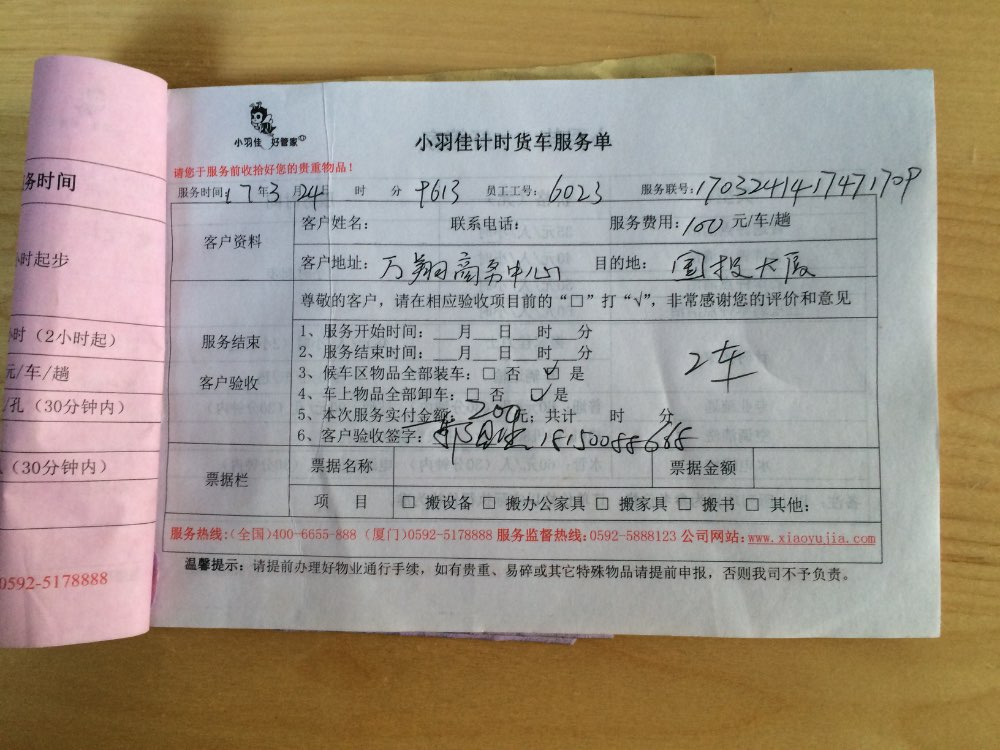 小羽佳 好管家
小羽佳计时货车服务单
请您于服务前收拾好您的贵重物品！
服务时间17年3月24日 时 分 9613 员工工号：6023 服务联号：1703241417471709
客户资料
客户姓名： 联系电话： 服务费用：100元/车/趟
客户地址：万翔商务中心 目的地：国投大厦
服务结束
客户验收
尊敬的客户，请在相应验收项目前的“□”打“√”，非常感谢您的评价和意见
1、服务开始时间：___月___日___时___分
2、服务结束时间：___月___日___时___分
3、候车区物品全部装车：□ 否 ☑ 是
4、车上物品全部卸车：□ 否 ☑是
5、本次服务实付金额：200元；共计 时 分
2车
6、客户验收签字： 18150088688
票据栏
票据名称 票据金额
项 目 □ 搬设备 □ 搬办公家具 □ 搬家具 □ 搬书 □ 其他：
服务热线：(全国)400-6655-888 (厦门)0592-5178888 服务监督热线：0592-5888123 公司网站：www.xiaoyujia.com
温馨提示：请提前办理好物业通行手续，如有贵重、易碎或其它特殊物品请提前申报，否则我司不予负责。
务时间
小时起步
小时（2小时起）
元/车/趟
/孔（30分钟内）
（30分钟内）
0592-5178888